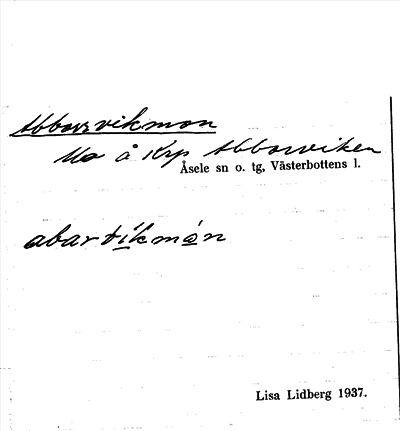 Abborrvikmon
Mo å Krp Abborrviken
Åsele sn o. tg, Västerbottens l.
abarvíkmón
Lisa Lidberg 1937.